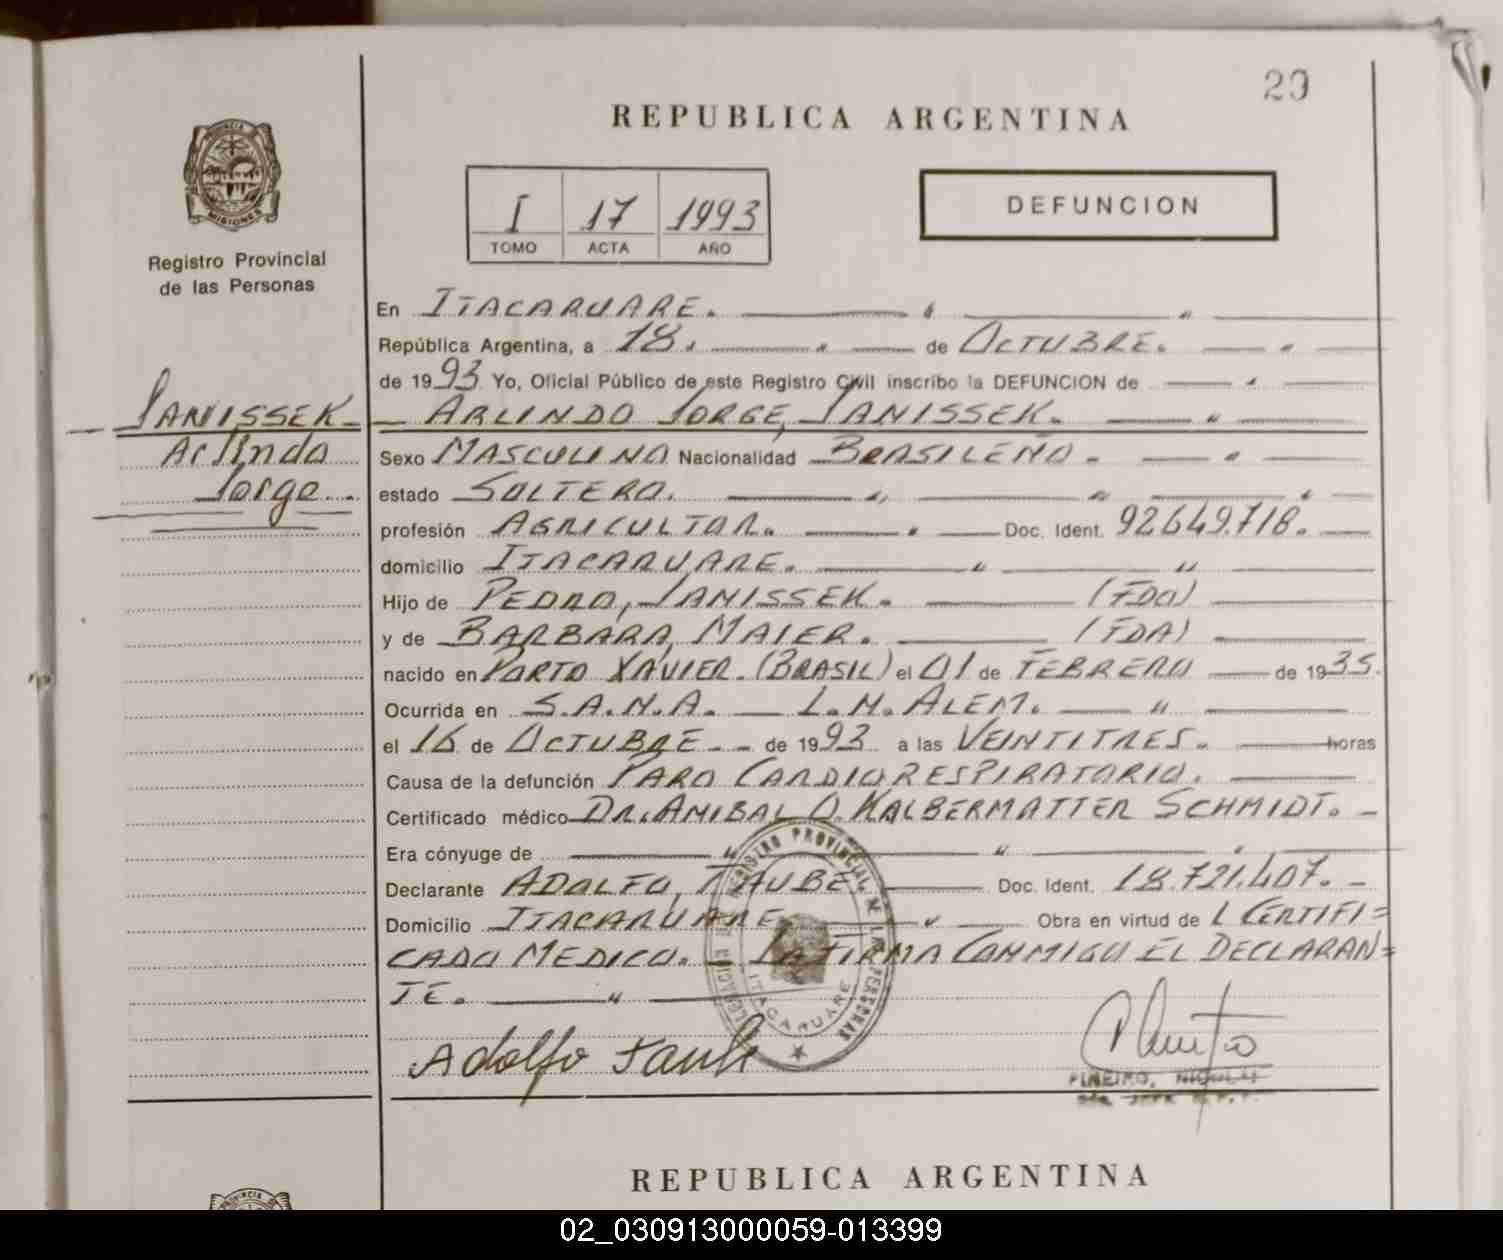 29
REPUBLICA ARGENTINA
PROVINCIA DE
MISIONES
Registro Provincial
de las Personas
I 17 1993
TOMO ACTA AÑO
DEFUNCION
En ITACARUARE.
República Argentina, a 18. de OCTUBRE.
de 1993 Yo, Oficial Público de este Registro Civil inscribo la DEFUNCION de
JANISSEK
Arlindo
Jorge
ARLINDO JORGE, JANISSEK.
Sexo MASCULINO Nacionalidad BRASILEÑO.
estado SOLTERO.
profesión AGRICULTOR. Doc. Ident. 92649.718.
domicilio ITACARUARE.
Hijo de PEDRO, JANISSEK. (FDO)
y de BARBARA, MAIER. (FDA)
nacido en PORTO XAVIER. (BRASIL) el 01 de FEBRERO de 1935.
Ocurrida en S.A.N.A. L.N. ALEM.
el 16 de OCTUBRE de 1993 a las VEINTITRES. horas
Causa de la defunción PARO CARDIORESPIRATORIO.
Certificado médico DR. ANIBAL O. KALBERMATTER SCHMIDT.
Era cónyuge de
Declarante ADOLFO, TAUBE Doc. Ident. 18.721.407.
Domicilio ITACARUARE Obra en virtud de L CERTIFI=
CADO MEDICO. LA FIRMA CONMIGO EL DECLARAN=
TE.
REGISTRO PROVINCIAL DE LAS PERSONAS
ITACARUARE
Adolfo
PIÑEIRO,
REPUBLICA ARGENTINA
PROVINCIA DE
02_030913000059-013399